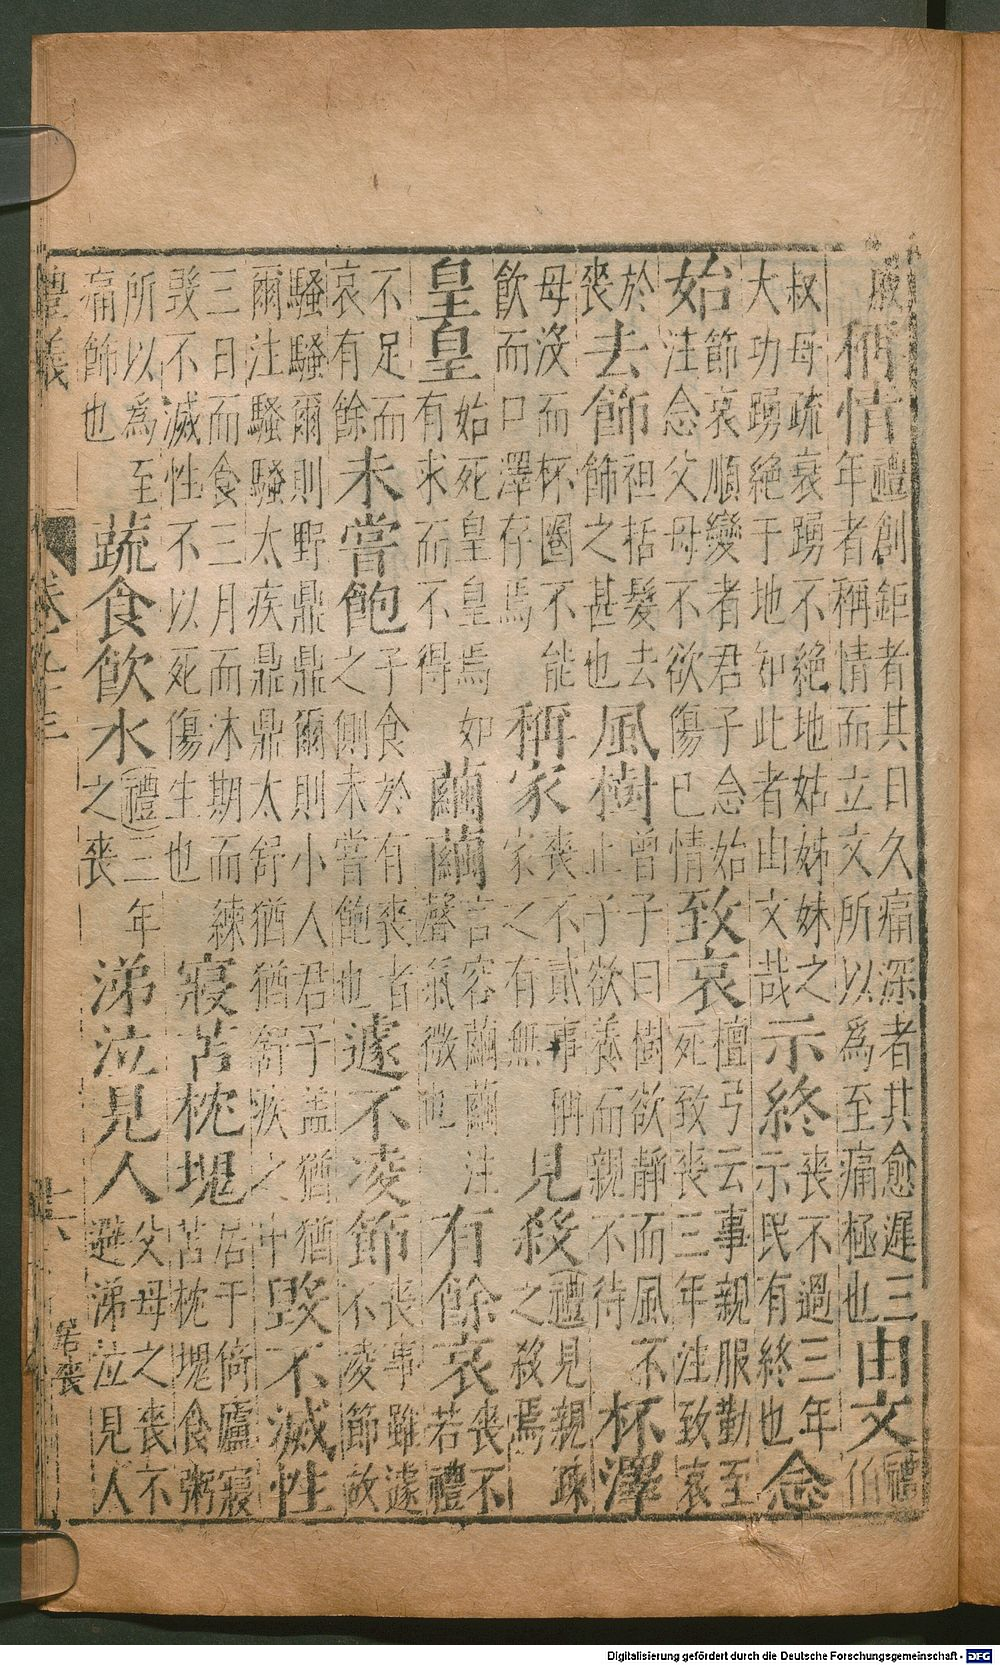 戚稱情禮創鉅者其日久痛深者其愈遲三年者稱情而立文所以為至痛極也由文禮伯
叔母疏衰踴不絕地姑姊妹之大功踴絕于地如此者由文哉示終喪不過三年示民有終也念
始節哀順變者君子念始注念父母不欲傷已情致哀檀弓云事親服勤至死致喪三年注致哀
於喪去飾袒括髮去飾之甚也風樹曾子曰樹欲靜而風不止子欲養而親不待杯澤
母沒而杯圈不能飲而口澤存焉稱家喪不貳事稱家之有無見殺禮見親疎之殺焉
皇皇始死皇皇焉如有求而不得繭繭言容繭繭注聲氣微也有餘哀喪不若禮
不足而哀有餘未嘗飽子食於有喪者之側未嘗飽也遽不凌節喪事雖遽不凌節故
騷騷爾則野鼎鼎爾則小人君子盖猶猶爾注騷騷太疾鼎鼎太舒猶猶舒疾之中毀不滅性
三日而食三月而沐期而練毀不滅性不以死傷生也寢苫枕塊居于倚廬寢苫枕塊食粥
所以為至痛飾也蔬食飲水禮三年之喪涕泣見人父母之喪不避涕泣見人
居喪
Digitalisierung gefördert durch die Deutsche Forschungsgemeinschaft - DFG